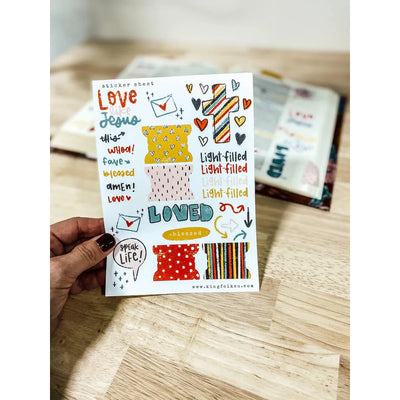 sticker sheet
LOVE
like
Jesus
this
whoa!
fave
blessed
amen!
Love
Light-filled
Light-filled
Light-filled
Light-filled
LOVED
blessed
SPEAK
LIFE!
www.kingfolkco.com